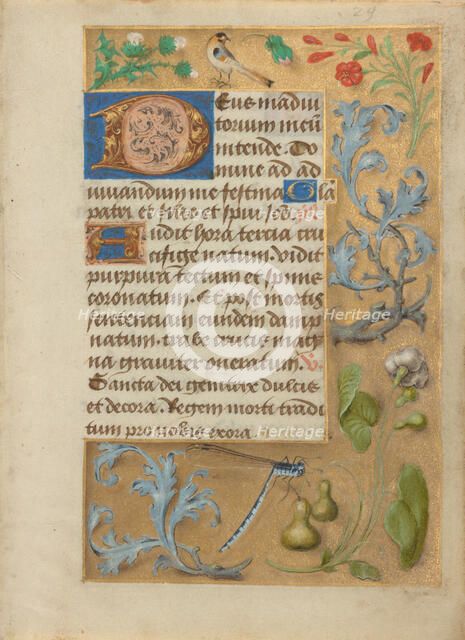 29
Deus in adiu
torium meū
intende. Do
mine ad ad
iuuandum me festina Gla
patri et filio et spiri. scō.
Audit hora tercia cru
cifige natum. vidit
purpura tectum et spine
coronatum. Et post mortis
sentenciam eundem damp
natum. trabe crucis mag
na grauiter oneratum. V
Sancta dei genitrix dulcis
et decora. Regem morti tradi
tum pro nobis exora
Heritage Heritage Heritage
Images Images Images
Heritage Heritage Heritage